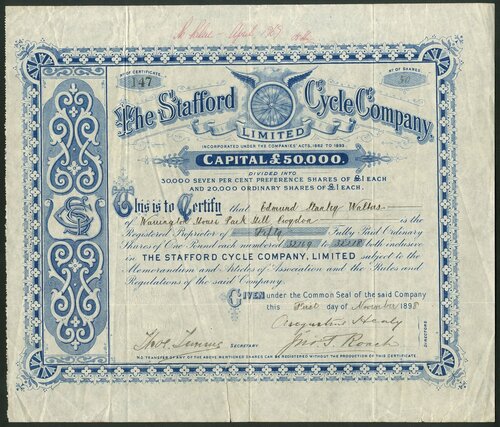 No. OF CERTIFICATE.
147
No. OF SHARES
50
The Stafford Cycle Company,
LIMITED
INCORPORATED UNDER THE COMPANIES' ACTS, 1862 TO 1893.
CAPITAL £50,000,
DIVIDED INTO
30,000 SEVEN PER CENT PREFERENCE SHARES OF £1 EACH
AND 20,000 ORDINARY SHARES OF £1 EACH.
This is to Certify that Edmund Stanley Walters
of Warrington House Park Hill Croydon is the
Registered Proprietor of Fifty Fully Paid Ordinary
Shares of One Pound each numbered to both inclusive
in THE STAFFORD CYCLE COMPANY, LIMITED subject to the
Memorandum and Articles of Association and the Rules and
Regulations of the said Company.
GIVEN under the Common Seal of the said Company
this First day of November 1898
Augustine Healy
SECRETARY
Jno. S. Roach
DIRECTORS
NO TRANSFER OF ANY OF THE ABOVE MENTIONED SHARES CAN BE REGISTERED WITHOUT THE PRODUCTION OF THIS CERTIFICATE.